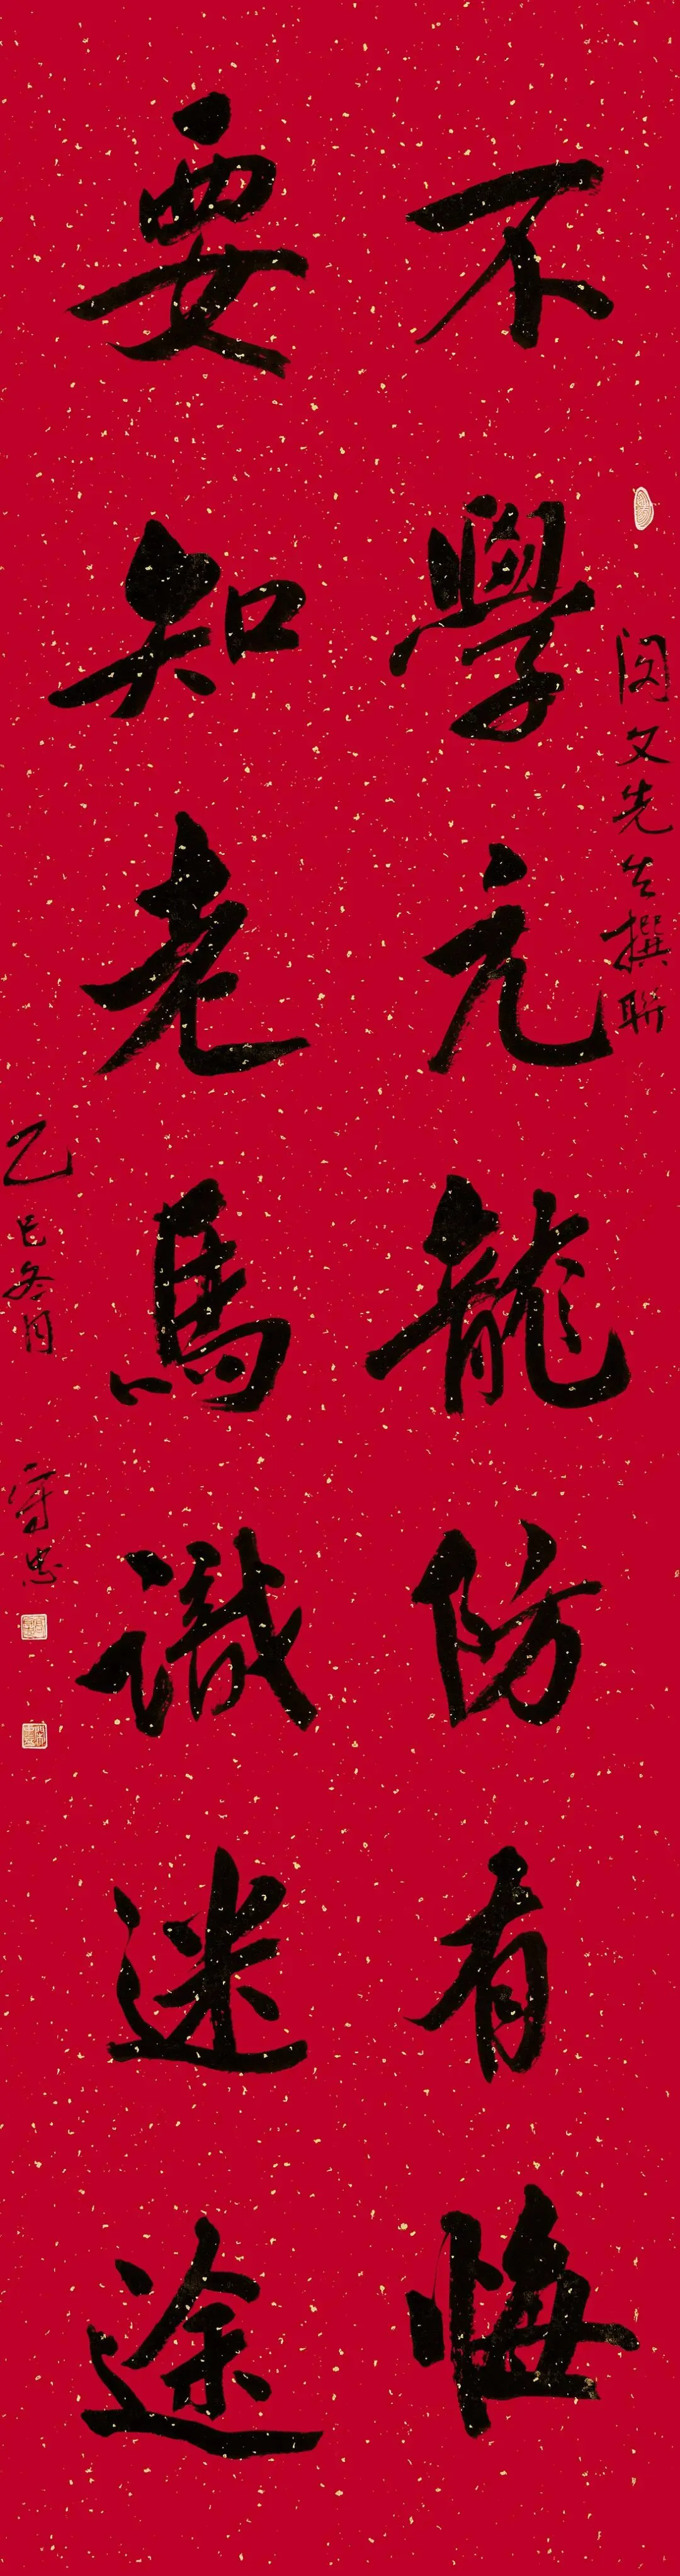 不學亢龍防有悔
要知老馬識迷途
文先生撰聯
乙巳冬月 守忠